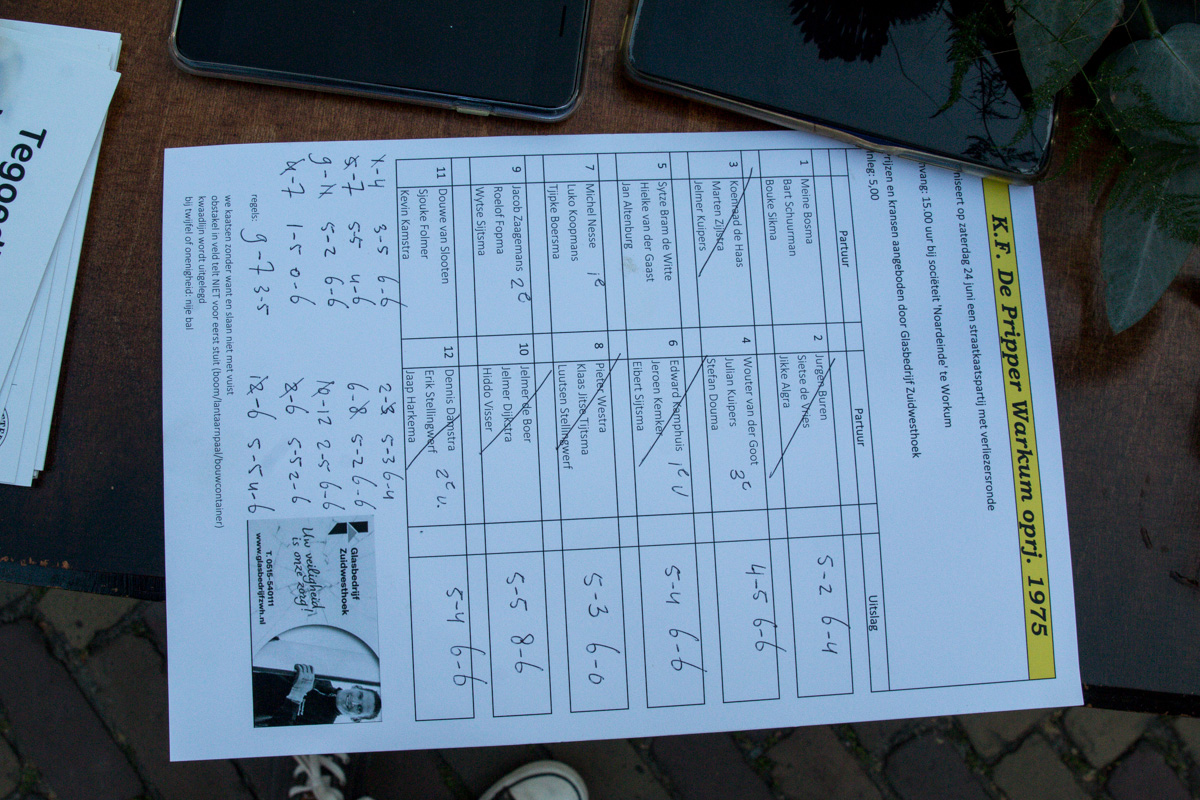 K.F. De Pripper Warkum oprj. 1975
niseert op zaterdag 24 juni een straatkaatspartij met verliezersronde
nvang: 15.00 uur bij sociëteit 'Noardeinde' te Workum
rijzen en kransen aangeboden door Glasbedrijf Zuidwesthoek
nleg: 5,00
Partuur Partuur Uitslag
1 Meine Bosma 2 Jurgen Buren
Bart Schuurman Sietse de Vries 5-2 6-4
Bouke Sikma Jikke Algra
3 Koenraad de Haas 4 Wouter van der Goot
Marten Zijlstra Julian Kuipers 3e 4-5 6-6
Jelmer Kuipers Stefan Douma
5 Sytze Bram de Witte 6 Edward Kamphuis 1e v
Hielke van der Gaast Jeroen Kemker 5-4 6-6
Jan Altenburg Eibert Sijtsma
7 Michel Nesse 1e 8 Pieter Westra
Luko Koopmans Klaas Jitse Tijtsma 5-3 6-0
Tjipke Boersma Luutsen Stellingwerf
9 Jacob Zaagemans 2e 10 Jelmer de Boer
Roelof Fopma Jelmer Dijkstra 5-5 8-6
Wytse Sijtsma Hiddo Visser
11 Douwe van Slooten 12 Dennis Damstra 2e v.
Sjouke Folmer Erik Stellingwerf 5-4 6-6
Kevin Kamstra Jaap Harkema
x-4 3-5 6-6 2-3 5-3 6-4
5-7 5-5 4-6 6-8 5-2 6-6
9-11 5-2 6-6 10-12 2-5 6-6
4-7 1-5 0-6 2-6 5-5 2-6
regels: 9-7 3-5 12-6 5-5 4-6
we kaatsen zonder want en slaan niet met vuist
obstakel in veld telt NIET voor eerst stuit (boom/lantaarnpaal/bouwcontainer)
kwaadlijn wordt uitgelegd
bij twijfel of onenigheid: nije bal
Glasbedrijf
Zuidwesthoek
Uw veiligheid
is onze zorg!
T. 0515-540111
www.glasbedrijfzwh.nl
Tegoe